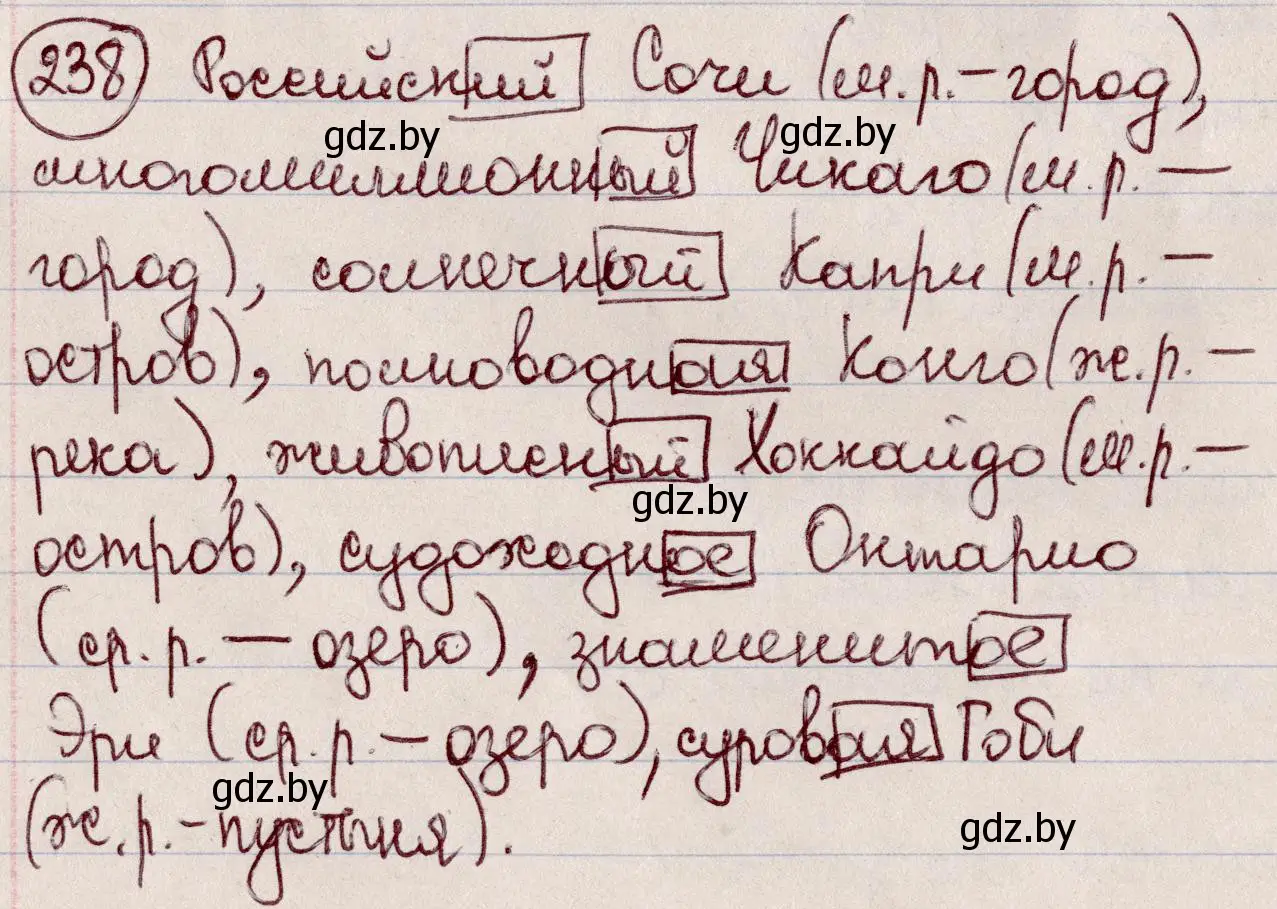 238 Российский Сочи (м.р. - город),
gdz.by gdz.by
многомиллионный Чикаго (м.р. —
город), солнечный Капри (м.р. —
остров), полноводная Конго (ж.р. —
река), живописный Хоккайдо (м.р. —
gdz.by
остров), судоходное Онтарио
(ср. р. — озеро), знаменитое
Эри (ср. р. — озеро), суровая Гоби
gdz.by gdz.by
(ж.р. - пустыня).